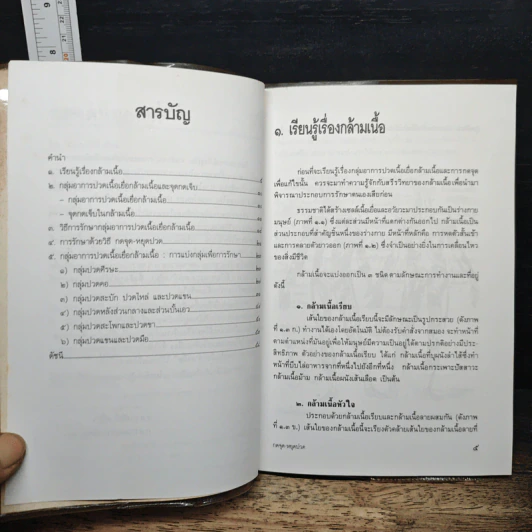 สารบัญ
คำนำ
๑. เรียนรู้เรื่องกล้ามเนื้อ
๒. กลุ่มอาการปวดเนื้อเยื่อกล้ามเนื้อและจุดกดเจ็บ
- กลุ่มอาการปวดเนื้อเยื่อกล้ามเนื้อ
- จุดกดเจ็บในกล้ามเนื้อ
๓. วิธีการรักษากลุ่มอาการปวดเนื้อเยื่อกล้ามเนื้อ
๔. การรักษาด้วยวิธี กดจุด-หยุดปวด
๕. กลุ่มอาการปวดเนื้อเยื่อกล้ามเนื้อ : การแบ่งกลุ่มเพื่อการรักษา
๑) กลุ่มปวดศีรษะ
๒) กลุ่มปวดคอ
๓) กลุ่มปวดสะบัก ปวดไหล่ และปวดแขน
๔) กลุ่มปวดหลังส่วนกลางและส่วนบั้นเอว
๕) กลุ่มปวดสะโพกและปวดขา
๖) กลุ่มปวดแขนและปวดมือ
ดัชนี
๑. เรียนรู้เรื่องกล้ามเนื้อ
ก่อนที่จะเรียนรู้เรื่องกลุ่มอาการปวดเนื้อเยื่อกล้ามเนื้อและการกดจุด
เพื่อแก้ไขนั้น ควรจะมาทำความรู้จักกับสรีรวิทยาของกล้ามเนื้อเพื่อนำมา
พิจารณาประกอบการรักษาตนเองเสียก่อน
ธรรมชาติได้สร้างเซลล์เนื้อเยื่อและอวัยวะมาประกอบกันเป็นร่างกาย
มนุษย์ (ภาพที่ ๑.๑) ซึ่งแต่ละส่วนมีหน้าที่แตกต่างกันออกไป กล้ามเนื้อเป็น
ส่วนประกอบที่สำคัญชิ้นหนึ่งของร่างกาย มีหน้าที่หลักคือ การหดตัวสั้นเข้า
และการคลายตัวยาวออก (ภาพที่ ๑.๒) ซึ่งจำเป็นอย่างยิ่งในการเคลื่อนไหว
ของสิ่งมีชีวิต
กล้ามเนื้อจะแบ่งออกเป็น ๓ ชนิด ตามลักษณะการทำงานและที่อยู่
ดังนี้
๑. กล้ามเนื้อเรียบ
เส้นใยของกล้ามเนื้อเรียบนี้จะมีลักษณะเป็นรูปกระสวย (ดังภาพ
ที่ ๑.๓ ก.) ทำงานได้เองโดยอัตโนมัติ ไม่ต้องรับคำสั่งจากสมอง จะทำหน้าที่
ตามตำแหน่งที่มันอยู่เพื่อให้มนุษย์มีความเป็นอยู่ได้ตามปรกติอย่างมีประ-
สิทธิภาพ ตัวอย่างของกล้ามเนื้อเรียบ ได้แก่ กล้ามเนื้อที่บุผนังลำไส้ซึ่งทำ
หน้าที่บีบไล่อาหารจากที่หนึ่งไปยังอีกที่หนึ่ง กล้ามเนื้อกระเพาะปัสสาวะ
กล้ามเนื้อม้าม กล้ามเนื้อผนังเส้นเลือด เป็นต้น
๒. กล้ามเนื้อหัวใจ
ประกอบด้วยกล้ามเนื้อเรียบและกล้ามเนื้อลายผสมกัน (ดังภาพ
ที่ ๑.๓ ข.) เส้นใยของกล้ามเนื้อนี้จะเรียงตัวคล้ายเส้นใยของกล้ามเนื้อลายที่
กดจุด หยุดปวด
๕